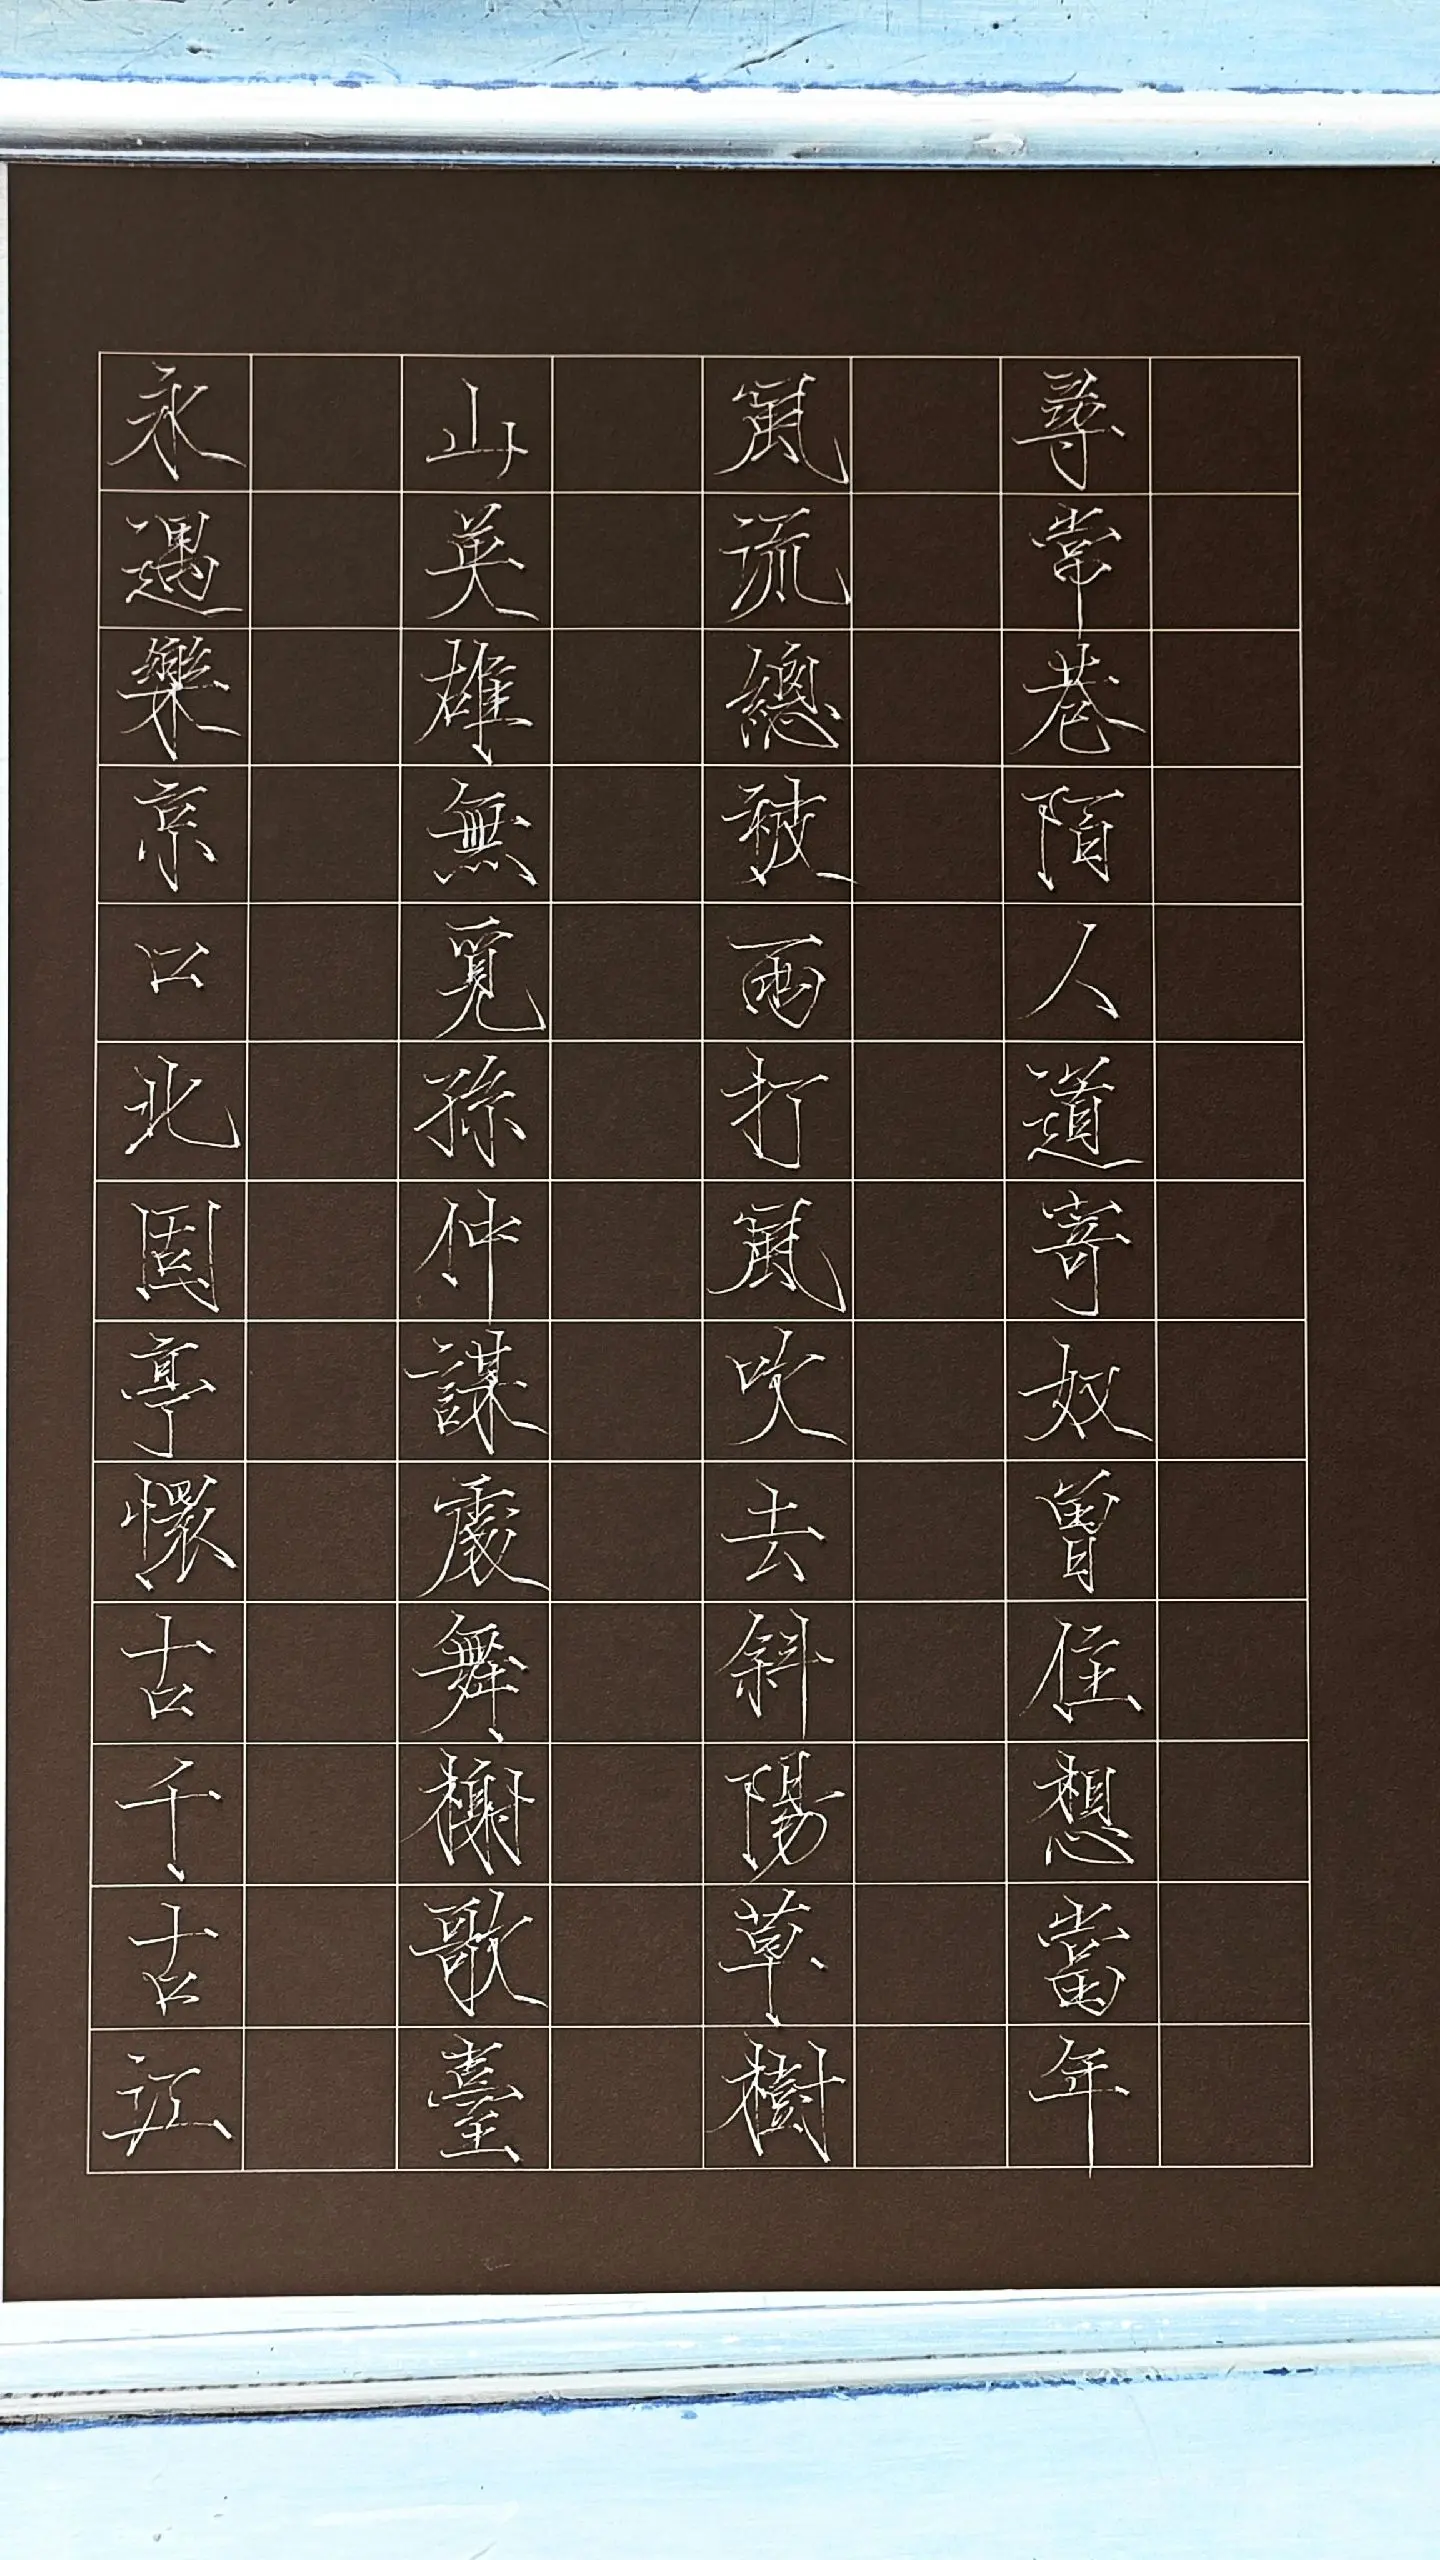 永遇樂京口北固亭懷古千古江
山英雄無覓孫仲謀處舞榭歌臺
風流總被雨打風吹去斜陽草樹
尋常巷陌人道寄奴曾住想當年